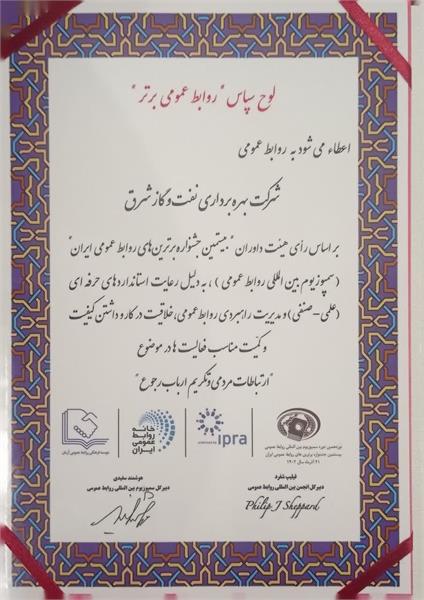 لوح سپاس "روابط عمومی برتر"
اعطاء می شود به روابط عمومی
شرکت بهره برداری نفت و گاز شرق
بر اساس رأی هیئت داوران "بیستمین جشنواره برترین های روابط عمومی ایران"
(سمپوزیوم بین المللی روابط عمومی)، به دلیل رعایت استانداردهای حرفه ای
(علمی-صنفی) و مدیریت راهبردی روابط عمومی، خلاقیت در کار و داشتن کیفیت
و کمیت مناسب فعالیت ها در موضوع
"ارتباطات مردمی و تکریم ارباب رجوع"
نوزدهمین دوره سمپوزیوم بین المللی روابط عمومی
بیستمین جشنواره برترین های روابط عمومی ایران
۲۱ آذرماه سال ۱۴۰۲
ipra
خانه
روابط
عمومی
ایران
موسسه فرهنگی روابط عمومی آرمان
فیلیپ شفرد
دبیرکل انجمن بین المللی روابط عمومی
Philip J Sheppard
هوشمند سفیدی
دبیرکل سمپوزیوم بین المللی روابط عمومی